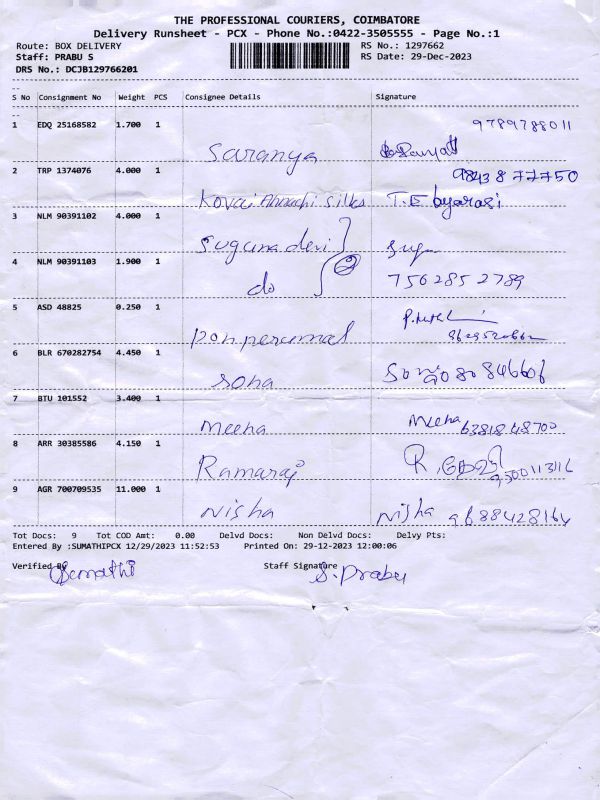 THE PROFESSIONAL COURIERS, COIMBATORE
Delivery Runsheet - PCX - Phone No.:0422-3505555 - Page No.:1
Route: BOX DELIVERY RS No.: 1297662
Staff: PRABU S RS Date: 29-Dec-2023
DRS No.: DCJB129766201
S No Consignment No Weight PCS Consignee Details Signature
1 EDQ 25168582 1.700 1 9789788011
Saranya
2 TRP 1374076 4.000 1 9843877750
Kovai Annachi silks T.E
3 NLM 90391102 4.000 1
Sugunadevi Sugu
4 NLM 90391103 1.900 1 2
do 7562852789
5 ASD 48825 0.250 1
ponperumal
6 BLR 670282754 4.450 1
Sona Sona 9080846606
7 BTU 101552 3.400 1
Meena Meena 6381848700
8 ARR 30385586 4.150 1
Ramaraj R
9 AGR 700709535 11.000 1
Nisha Nisha 9688428164
Tot Docs: 9 Tot COD Amt: 0.00 Delvd Docs: Non Delvd Docs: Delvy Pts:
Entered By :SUMATHIPCX 12/29/2023 11:52:53 Printed On: 29-12-2023 12:00:06
Verified By Staff Signature
Sumathi S. Prabu